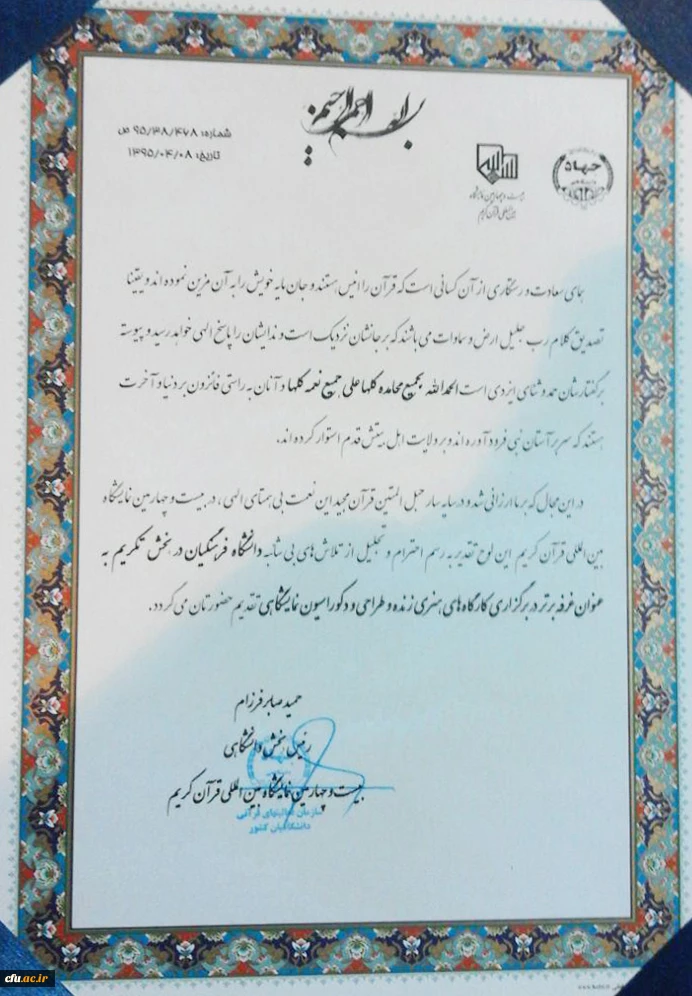 بسم الله الرحمن الرحیم
شماره: ۹۵/۳۸/۴۶۸ ص
تاریخ: ۱۳۹۵/۰۴/۰۸
جهاد
بیست و چهارمین نمایشگاه
بین المللی قرآن کریم
همای سعادت و رستگاری از آن کسانی است که قرآن را انیس هستند و جان مایه خویش را به آن مزین نموده اند و یقینا
تصدیق کلام رب جلیل ارض و سماوات می باشند که بر جانشان نزدیک است و ندایشان را پاسخ الهی خواهد رسید و پیوسته
بر گفتارشان حمد و ثنای ایزدی است الحمدالله بجمیع محامده کلها علی جمیع نعمه کلها و آنان به راستی فائزون بر دنیا و آخرت
هستند که سر بر آستان نبی فرود آورده اند و بر ولایت اهل بیتش قدم استوار کرده اند.
در این مجال که بر ما ارزانی شد و در سایه سار حبل المتین قرآن مجید این نعمت بی همتای الهی، در بیست و چهارمین نمایشگاه
بین المللی قرآن کریم این لوح تقدیر به رسم احترام و تجلیل از تلاش های بی شائبه دانشگاه فرهنگیان در بخش تکریم به
عنوان غرفه برتر در برگزاری کارگاه های هنری زنده و طراحی و دکوراسیون نمایشگاهی تقدیم حضورتان می گردد.
حمید صابر فرزام
رئیس بخش دانشگاهی
بیست و چهارمین نمایشگاه بین المللی قرآن کریم
سازمان فعالیتهای قرآنی
دانشگاهیان کشور
cfu.ac.ir